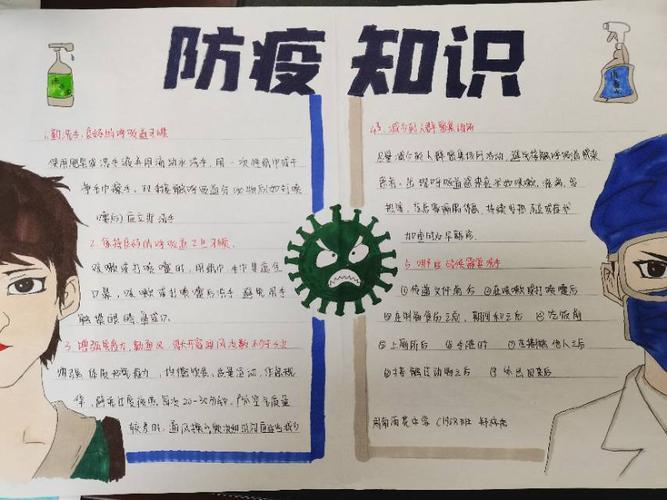 防疫知识
1.勤洗手,良好的呼吸道习惯
使用肥皂或洗手液并用流动水洗手,用一次性纸巾或干
净毛巾擦手。双手接触呼吸道分泌物后(如打喷
嚏后)应立即洗手
2.保持良好的呼吸道卫生习惯。
咳嗽或打喷嚏时,用纸巾、毛巾等遮住
口鼻,咳嗽或打喷嚏后洗手,避免用手
触摸眼睛、鼻或口。
3.增强免疫力
增强体质和免疫力,均衡饮食、适量运动、作息规
律,避免过度疲劳。每次20-30分钟,户外空气质量
较差时,通风换气频次和时间应适当减少
尽量减少到人群密集场所活动,避免接触呼吸道感染
患者,出现呼吸道感染症状如咳嗽、流涕、发
热等,应居家隔离休息,持续发热不退或症状
加重时及早就医
①传递文件前后 ②在咳嗽或打喷嚏后
③在制备食品之前、期间和之后 ④吃饭前
⑤上厕所后 ⑥手脏时 ⑦接触他人之后
⑧接触过动物之后 ⑨外出回来后